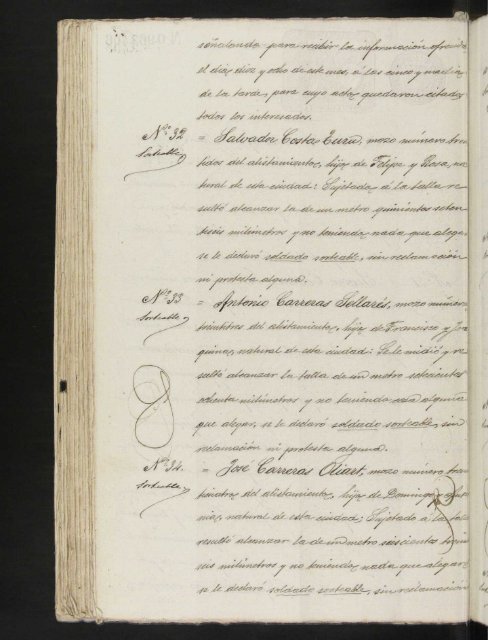 señalando para recibir la información ofrecida
el dia, diez y ocho de este mes, á las cinco y media
de la tarde, para cuyo acto quedaron citados
todos los interesados.
Nº 32 = Salvador Costa Turu, mozo número tre
Sorteable tidos del alistamiento, hijo de Felipe y Rosa, na
tural de esta ciudad: Sujetado á la talla re
sultó alcanzar la de un metro quinientos seten
milímetros y no teniendo nada que alegar
se le declaró soldado sorteable, sin reclamación
ni protesta alguna.
Nº 33 = Antonio Carreras Sellarés, mozo número
Sorteable treintitres del alistamiento, hijo de Francisco y Joa
quina, natural de esta ciudad: Se le midió y re
sultó alcanzar la talla de un metro setecientos
ochenta milímetros y no teniendo cosa alguna
que alegar, se le declaró soldado sorteable, sin
reclamación ni protesta alguna.
Nº 34. = José Carreras Oliart, mozo número trei
Sorteable del alistamiento, hijo de Domingo y
natural de esta ciudad; Sujetado á la talla
resultó alcanzar la de un metro seiscientos
milímetros y no teniendo nada que alegar
se le declaró soldado sorteable, sin reclamación